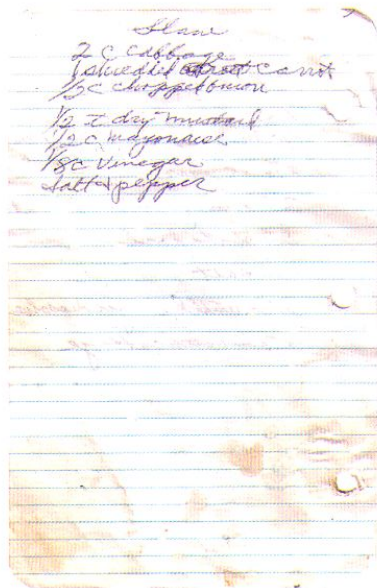 Slaw
2 c cabbage
1 shredded carrot
1/2 c chopped onion
1/2 t dry mustard
1/2 c mayonaise
1/8 c vinegar
salt & pepper